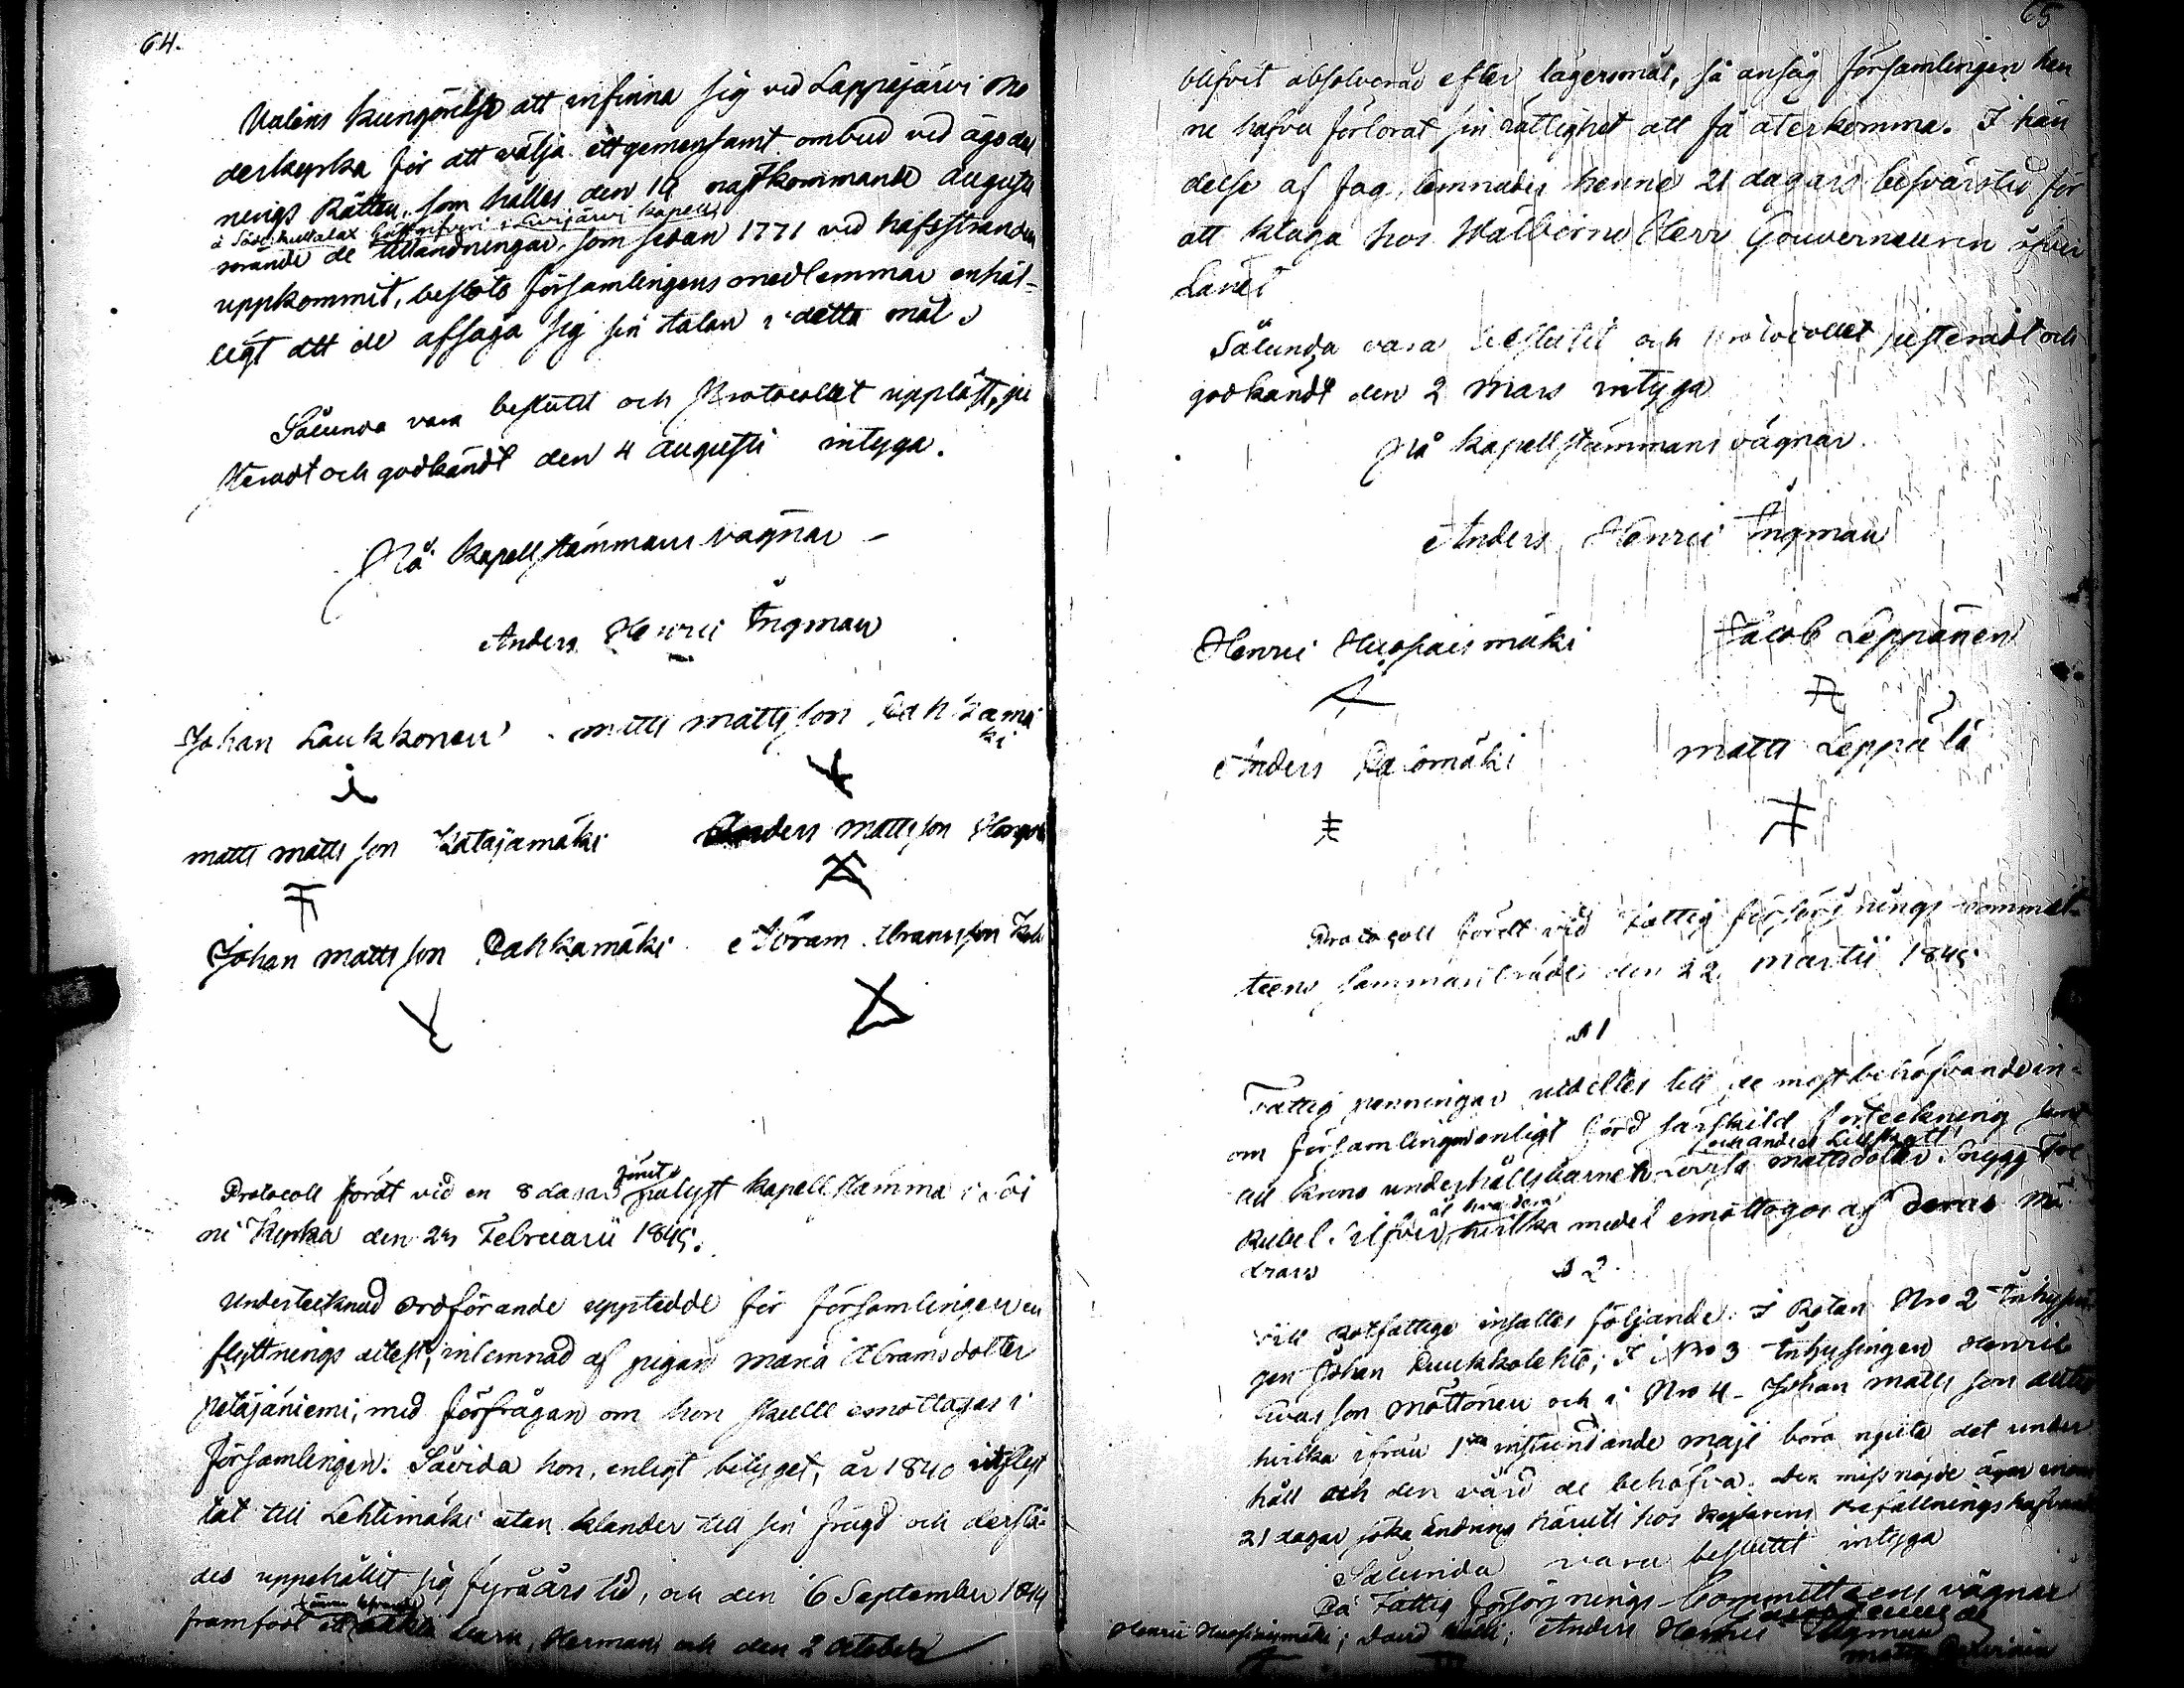 64.
Ualens kungörelse att infinna sig vid Lappajärvi Mo
derkyrka för att välja ett gemensamt ombud vid ägodel
nings Rätten, som hålles den 19 nästkommande Augusti
å Söderkullalax Gästgifveri i Evijärvi kapell
rörande de tillandningar, som sedan 1771 vid hafsstranden
uppkommit, beslöto församlingens medlemmar enhäl-
ligt att de afsäga sig sin talan i detta mål.
Sålunda vara beslutit och Protocollet uppläst, ju
steradt och godkändt den 4 Augusti intyga.
På kapellstämmans vägnar
Anders Henric Ingman
Johan Laukkonen Matts Mattsson Pahkamä
ki
Matts Mattsson Katajamäki Anders Mattsson
Johan Mattsson Pahkamäki Abram Abramsson
Protocoll fördt vid en 8 dagar förut pålyst kapellstämma i Soi
ni Kyrka den 23 Februarii 1845.
Undertecknad Ordförande upptedde för församlingen en
flyttnings attest, inlemnad af pigan Maria Abramsdotter
Petäjäniemi, med förfrågan om hon skulle emottagas i
församlingen. Såvida hon, enligt betyget, år 1840 utflyt
tat till Lehtimäki utan klander till sin frägd och derstä-
des uppehållit sig fyra års tid, och den 6 September 1844
framfödt ett oäkta barn, Herman och den 2 October
65
blifvit absolverad efter lägersmål, så ansåg församlingen hen
ne hafva förlorat sin rättighet att få återkomma. I hän
delse af Jag, lemnades henne 21 dagars besvärstid för
att klaga hos Wälborne Herr Gouverneuren öfver
Länet
Sålunda vara beslutit och Protocollet justeradt och
godkändt den 2 Mars intyga
På kapellstämmans vägnar.
Anders Henric Ingman
Henric Huopaismäki Jacob Leppänen
Anders Palomäki Matts Leppälä
Protocoll fördt vid Fattig försörjnings Committ-
teens sammanträde den 22 Martii 1845.
§ 1
Fattig penningar utdeltes till de mest behöfvande in-
om församlingen enligt förd särskild förteckning samt
och Anders
till ännu underhållsbarnet Lovisa Mattsdotter
af hvardera
Rubel Silfver, hvilka medel emottogos af deras Mö
drar
§ 2.
Till Rotfattige insattes följande: I Rotan Nro 2 Inhysin
gen Johan Puukkolehto; I Nro 3 Inhysingen Henric
Möttönen och i Nro 4 Johan Matts son
hvilka ifrån 1sta instundande Maji böra njuta det under
håll och den vård de behöfva. Den missnöjde äger inom
21 dagar söka ändring häruti hos Kejserens Befallningshafvande
Sålunda vara beslutit intyga
På Fattig Försörjnings-Committeens vägnar
Anders Henric Ingman
Henric Huopaismäki; David
Matts